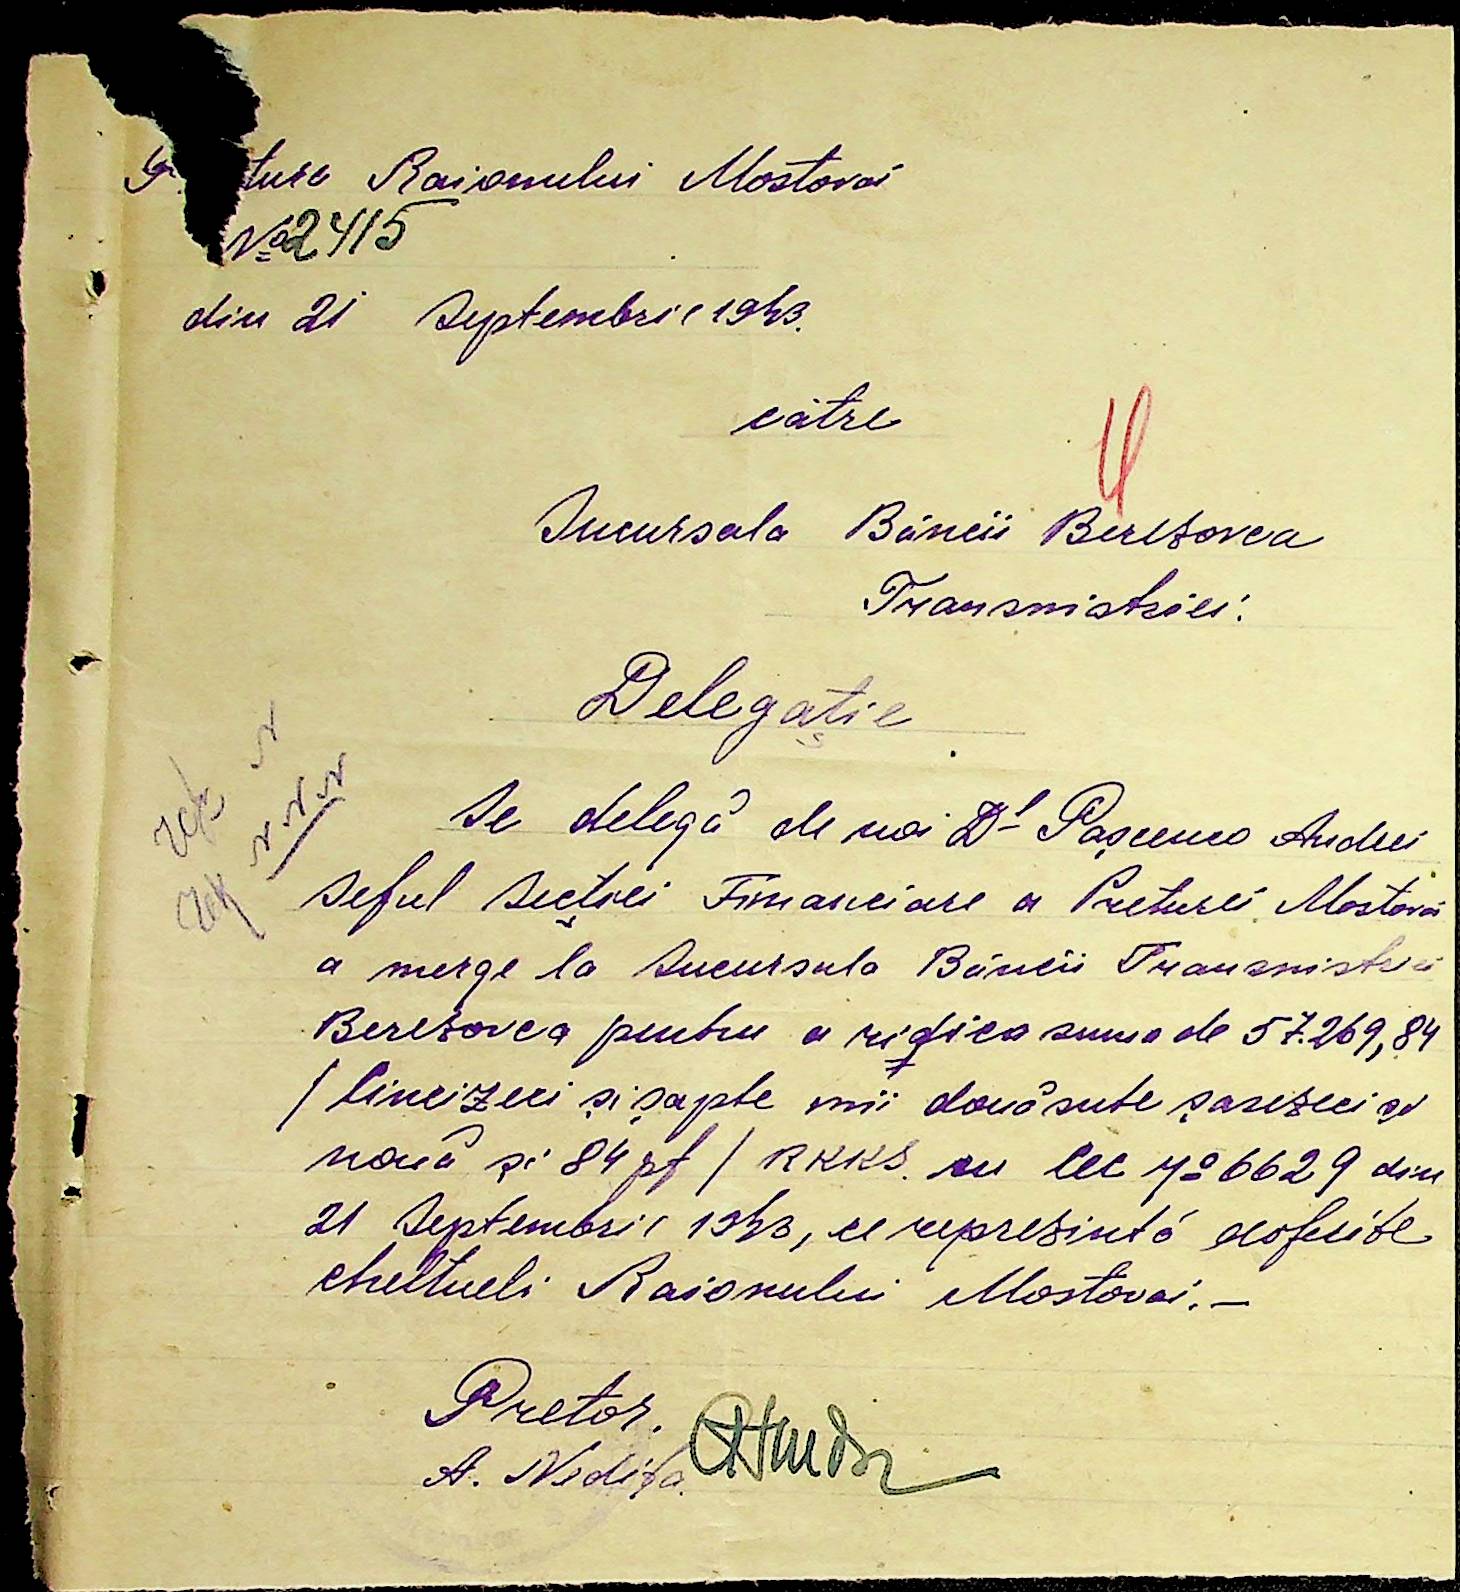 tura Raionului Mostovoi
No 2415
din 21 Septembrie 1943.
către
Sucursala Băncii Berezovca
Transnistriei.
Delegație
Se delegă de noi Dl Pașcenco Andrei
Seful Secției Financiare a Preturei Mostovoi
a merge la Sucursala Băncii Transnistriei
Berezovca pentru a ridica suma de 57.269,84
/ Cincizeci și șapte mii douăsute șasezeci și
nouă și 84 pf / RKKS. cu Cec No 6629 din
21 Septembrie 1943, ce reprezintă
cheltueli Raionului Mostovoi.-
Pretor.
A. Nediță.